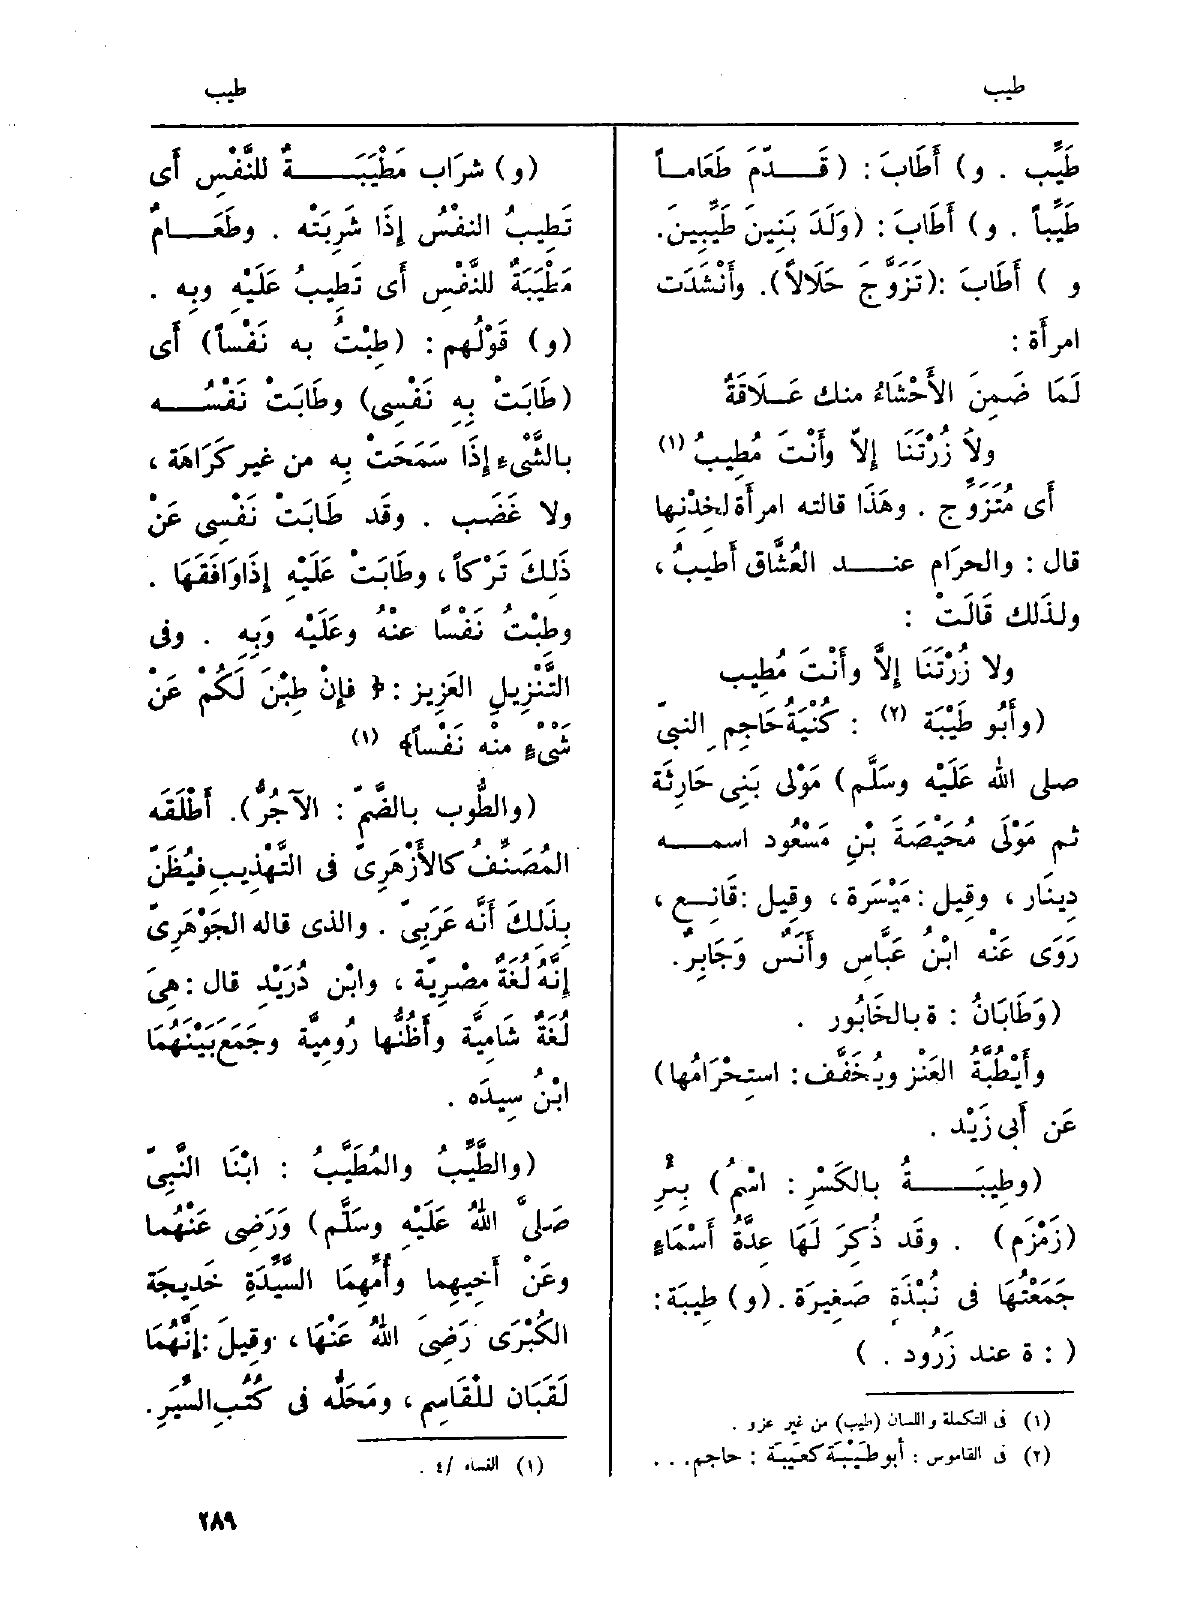 طيب
طيب
طَيِّب . و) أَطَابَ : (قَـدّمَ طَعَاماً
طَيِّباً . و) أَطَابَ : (وَلَدَ بَنِينَ طَيِّبِينَ.
و ) أَطَابَ :(تَزَوَّجَ حَلَالاً). وأَنْشَدَت
امرأَة :
لَمَا ضَمِنَ الأَحْشَاءُ منك عَـلَاقَةٌ
ولاَ زُرْتَنَا إِلاّ وأَنْتَ مُطِيبُ (١)
أَى مُتَزَوِّج . وهَذَا قالته امرأَة لخِدْنِها
قال : والحرَام عنـد العُشَّاق أَطيبُ ،
ولذَلك قَالَتْ :
ولا زُرْتَنَا إِلاَّ وأَنْتَ مُطِيب
(وأَبُو طَيْبَة (٢) : كُنْيَةُ حَاجِمِ النبىّ
صلى الله عَلَيْه وسَلَّم) مَوْلى بَنِى حَارِثَة
ثم مَوْلَى مُحَيْصَةَ بْنِ مَسْعُود اسمـه
دِينَار ، وقِيل : مَيْسَرة ، وقِيل :قَانِـع ،
رَوَى عَنْه ابْنُ عَبَّاسِ وأَنَسٌ وَجَابِرٌ.
(وَطَابَانُ : ة بالخَابُور .
وأَيْطُبَّةُ العَنْز ويُخَفَّف : استِحْرَامُها)
عَن أَبِى زَيْد .
(وطِيبَـةُ بالكَسْرِ : اسْمُ) بِئْرِ
(زَمْزَم) . وقَد ذُكِرَ لَهَا عِدَّةُ أَسْمَاءٍ
جَمَعْتُهَا فى نُبْذَةٍ صَغِيرَة .(و) طِيبَة :
( : ة عند زَرُود . )
(١) فى التكملة واللسان (طيب) من غير عزو .
(٢) فى القاموس : أبو طَيْبَة كعَيبَة : حاجم. . .
(و) شرَاب مَطْيَبَـةٌ للنَّفْسِ أَى
تَطِيبُ النفْسُ إِذَا شَرِبَتْه . وطَعَـامٌ
مَطْيَبَةٌ للنَّفْسِ أَى تَطِيبُ عَلَيْهِ وبِه .
(و) قَوْلُهم : (طِبْتُ به نَفْساً) أَى
(طَابَتْ بِهِ نَفْسِى) وطَابَتْ نَفْسُـه
بالشَّىْءِ إِذَا سَمَحَتْ بِه من غير كَرَاهَة ،
ولا غَضَب . وقَد طَابَتْ نَفْسِى عَنْ
ذَلِكَ تَرْكاً ، وطَابَتْ عَلَيْهِ إِذَا وَافَقَهَا .
وطِبْتُ نَفْسًا عنْهُ وعَلَيْه وَبِهِ . وفى
التَّنْزِيلِ العَزِيز : ﴿ فإِنْ طِبْنَ لَكُمْ عَنْ
شَىْءٍ منْه نَفْساً﴾ (١)
(والطُّوب بالضَّمّ : الآجُرُّ). أَطْلَقَه
المُصَنِّفُ كالأَزْهَرِىّ فى التَّهْذِيبِ فيُظَنّ
بِذَلِكَ أَنَّه عَرَبِىّ . والذى قاله الجَوْهَرِىّ
إِنَّهُ لُغَةٌ مصْرِيَّة ، وابْن دُرَيْدِ قال :هِىَ
لُغَةٌ شَامِيَّة وأَظُنُّها رُومِيَّة وجَمَعَ بَيْنَهُمَا
ابْنُ سِيدَه .
(والطَّيِّبُ والمُطَيَّبُ : ابْنَا النَّبِىّ
صَلىَّ اللهُ عَلَيْهِ وسَلَّم) وَرَضِىَ عَنْهُما
وعَنْ أَخِيهِما وأُمِّهِمَا السَّيِّدَةِ خَدِيجَة
الكُبْرَى رَضِىَ اللهُ عَنْهَا ، وقِيلَ :إِنَّهُمَا
لَقَبَان للْقَاسِم ، ومَحَلُّه فى كُتُبِ السِّيَرِ.
(١) النساء /٤ .
٢٨٩